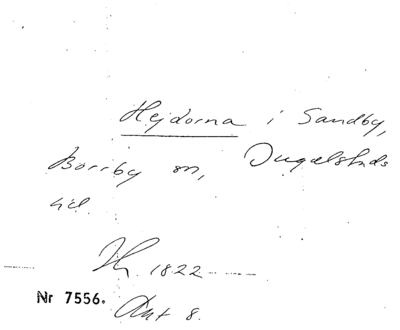 Hejdorna i Sandby,
Borrby sn, Ingelstads
hd.
1822
Nr 7556.
Akt 8.